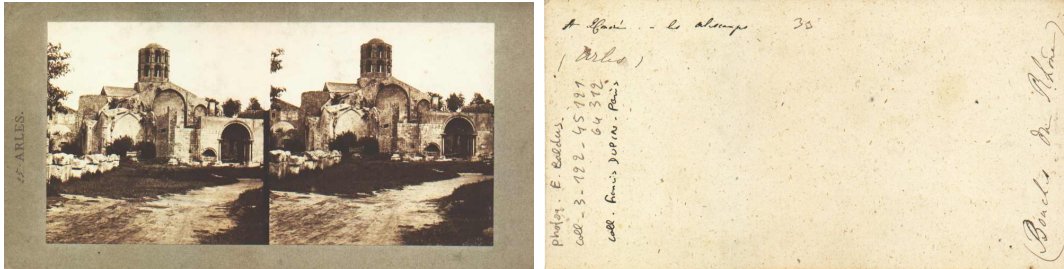 25 ARLES.
St Honorat .. les aliscamps 33
(Arles)
photog. E. Baldus
coll - 3 - 122 - 45 121
64 312
coll. Francis DUPIN. Paris
(Bouches du Rhône)